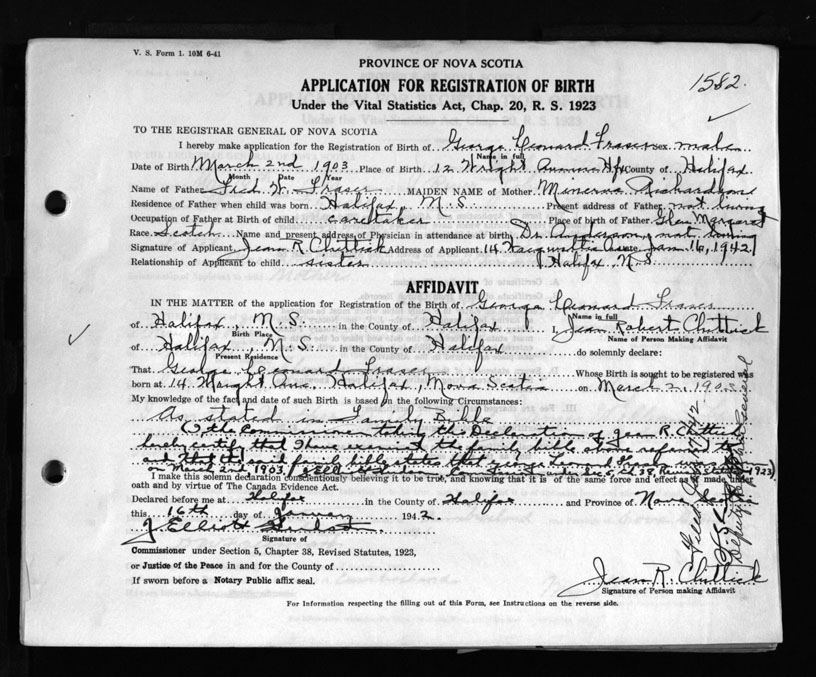 V. S. Form 1. 10M 6-41
PROVINCE OF NOVA SCOTIA
1582
APPLICATION FOR REGISTRATION OF BIRTH
Under the Vital Statistics Act, Chap. 20, R. S. 1923
TO THE REGISTRAR GENERAL OF NOVA SCOTIA
I hereby make application for the Registration of Birth of George Leonard Fraser sex male
Name in full
Date of Birth March 2nd 1903 Place of Birth 12 Wright Avenue Hfx County of Halifax
Month Date Year
Name of Father Fred W. Fraser MAIDEN NAME of Mother Minerva Richardson
Residence of Father when child was born Halifax, N.S. Present address of Father not living
Occupation of Father at Birth of child caretaker Place of birth of Father Glen Margaret
Race Scotch Name and present address of Physician in attendance at birth Dr. Anderson, not living
Signature of Applicant Jean R. Chittick Address of Applicant 14 Jan 16, 1942
Relationship of Applicant to child sister Halifax, N.S.
AFFIDAVIT
IN THE MATTER of the application for Registration of the Birth of George Leonard Fraser
Name in full
of Halifax, N.S. in the County of Halifax I, Jean Robert Chittick
Birth Place Name of Person Making Affidavit
of Halifax, N.S. in the County of Halifax
Present Residence do solemnly declare:
That George Leonard Fraser Whose Birth is sought to be registered was
born at 14 Wright Ave. Halifax, Nova Scotia on March 2, 1903
My knowledge of the fact and date of such Birth is based on the following Circumstances:
As stated in Family Bible
(I the Commissioner taking the Declaration of Jean R. Chittick
hereby certify that I have examined the family bible above referred to
and that said family bible states that George Leonard Fraser was born
on March 2nd 1903
I make this solemn declaration conscientiously believing it to be true, and knowing that it is of the same force and effect as if made under
oath and by virtue of The Canada Evidence Act.
Declared before me at Halifax in the County of Halifax and Province of Nova Scotia
this 16th day of January 1942.
J. Elliott
Signature of
Commissioner under Section 5, Chapter 38, Revised Statutes, 1923,
or Justice of the Peace in and for the County of
If sworn before a Notary Public affix seal.
Jean R. Chittick
Signature of Person making Affidavit
For Information respecting the filling out of this Form, see Instructions on the reverse side.
Filed
Deputy Registrar General